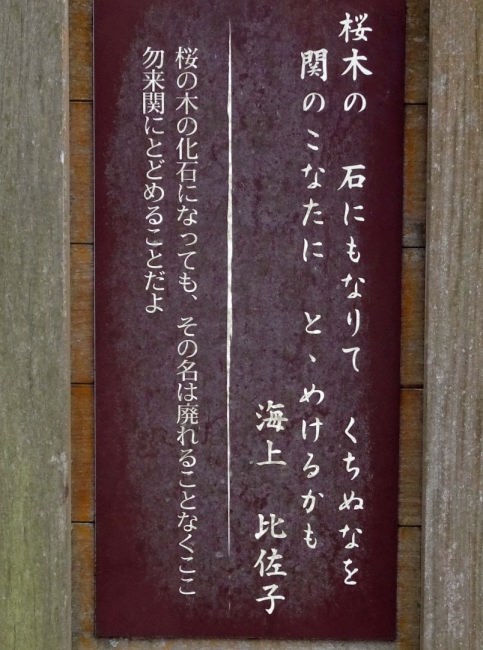 桜木の 石にもなりて くちぬなを
関のこなたに とゝめけるかも
海上 比佐子
桜の木の化石になっても、その名は廃れることなくここ
勿来関にとどめることだよ